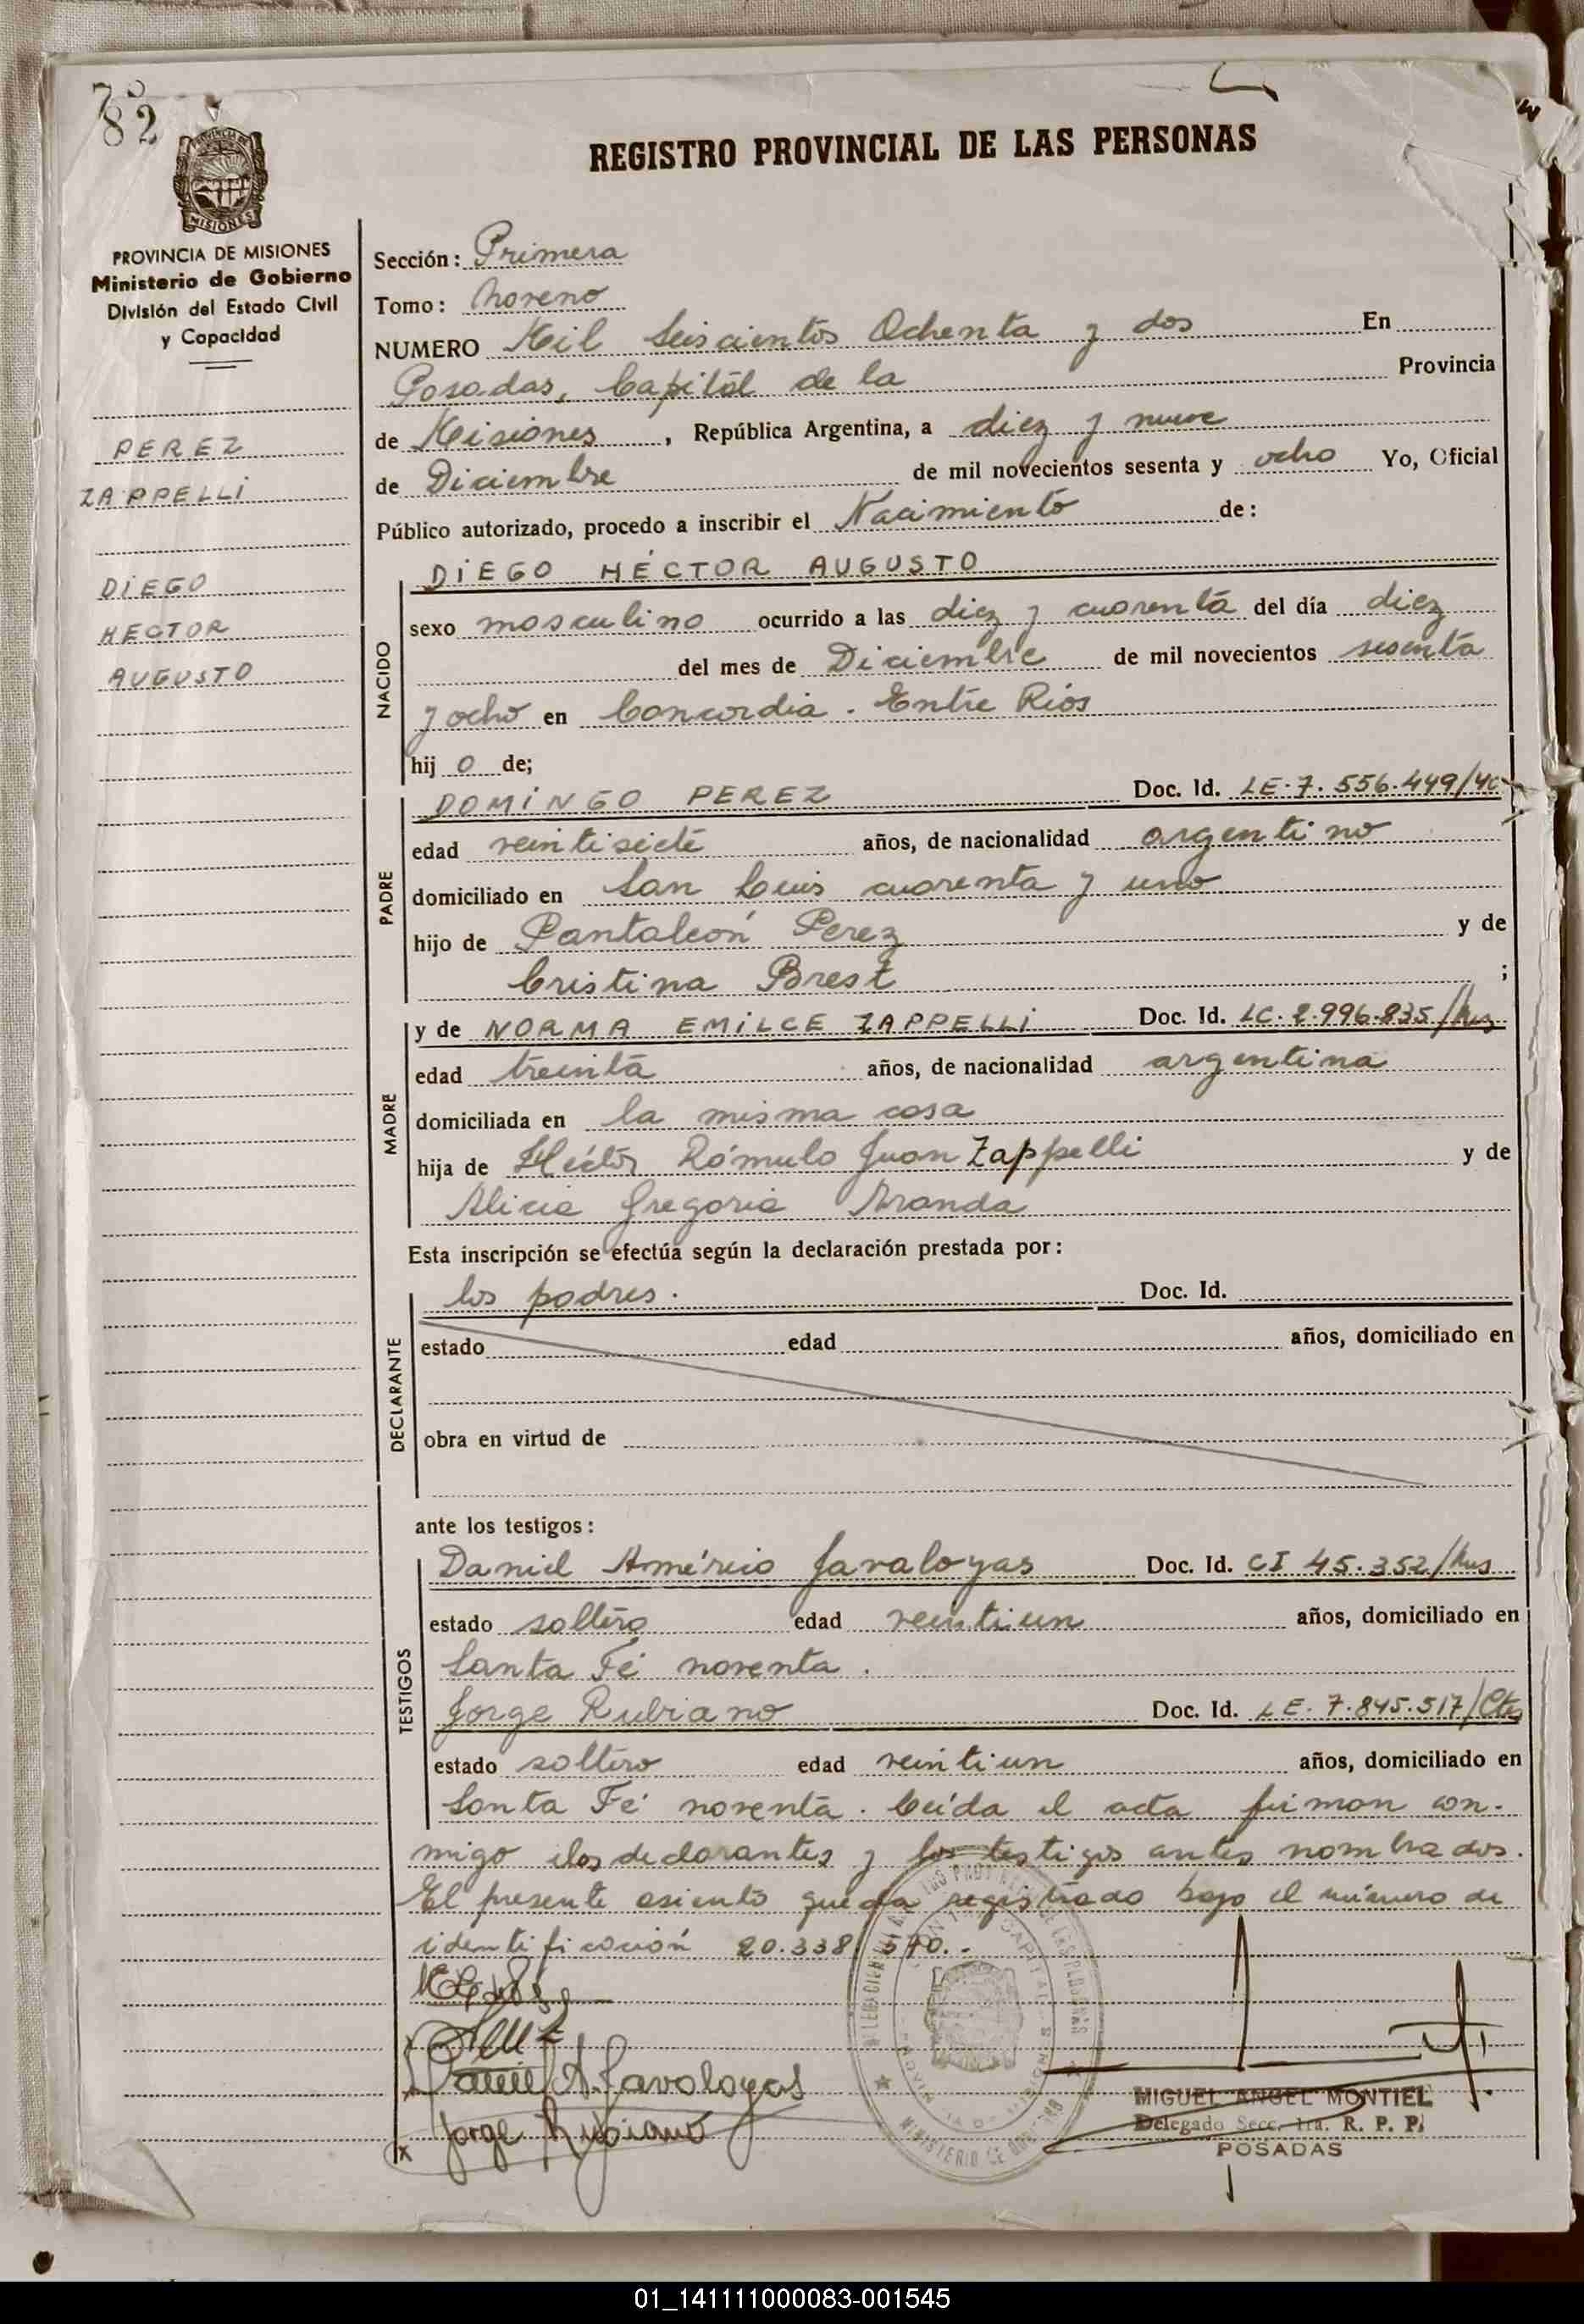 782
REGISTRO PROVINCIAL DE LAS PERSONAS
PROVINCIA DE MISIONES
Ministerio de Gobierno
División del Estado Civil
y Capacidad
PEREZ
ZAPPELLI
DIEGO
HECTOR
AUGUSTO
Sección: Primera
Tomo: Noveno
NUMERO Mil Seiscientos Ochenta y dos En
Posadas, Capital de la Provincia
de Misiones, República Argentina, a diez y nueve
de Diciembre de mil novecientos sesenta y ocho Yo, Oficial
Público autorizado, procedo a inscribir el Nacimiento de:
NACIDO
DIEGO HÉCTOR AUGUSTO
sexo masculino ocurrido a las diez y cuarenta del día diez
del mes de Diciembre de mil novecientos sesenta
y ocho en Concordia. Entre Rios
hij o de;
PADRE
DOMINGO PEREZ Doc. Id. LE. 7.556.449/
edad veintisiete años, de nacionalidad argentino
domiciliado en San Luis cuarenta y uno
hijo de Pantaleón Perez y de
Cristina Brest ;
MADRE
y de NORMA EMILCE ZAPPELLI Doc. Id. LC. 2.996.835/
edad treinta años, de nacionalidad argentina
domiciliada en la misma casa
hija de Héctor Rómulo Juan Zappelli y de
Alicia Gregoria Aranda
Esta inscripción se efectúa según la declaración prestada por:
DECLARANTE
los padres. Doc. Id.
estado edad años, domiciliado en
obra en virtud de
ante los testigos:
TESTIGOS
Daniel Américo Javaloyas Doc. Id. CI 45.352/
estado soltero edad veintiun años, domiciliado en
Santa Fé noventa.
Jorge Rubiano Doc. Id. LE. 7.845.517/Ctes
estado soltero edad veintiun años, domiciliado en
Santa Fé noventa. Leída el acta firman con-
migo los declarantes y los testigos antes nombrados.
El presente asiento queda registrado bajo el número de
identificación 20.338.540.-
Daniel A. Javaloyas
Jorge Rubiano
MIGUEL ANGEL MONTIEL
Delegado Secc. 1ra. R. P. P.
POSADAS
01_141111000083-001545